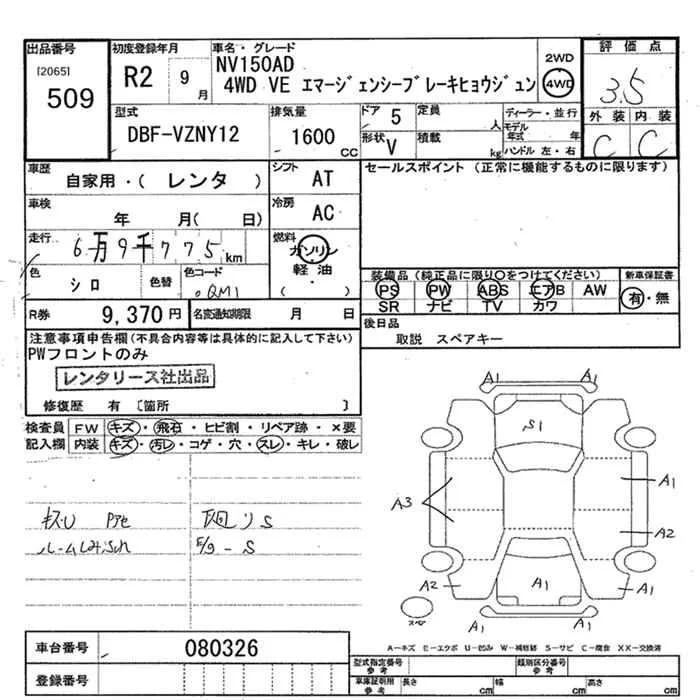 出品番号
[2065]
509
初度登録年月
R2 9月
車名・グレード
NV150AD
4WD VE エマージェンシーブレーキヒョウジュン
2WD
4WD
評価点
3.5
外装 内装
C C
型式
DBF-VZNY12
排気量
1600 CC
ドア 5
形状 V
定員 人
積載 kg
ディーラー・並行
モデル年式 年
ハンドル 左・右
車歴
自家用・( レンタ )
シフト AT
車検 年 月( 日)
冷房 AC
走行 6万9千775 km
燃料 ガソリン
軽油
・
( )
色 シロ 色替
色コード QM1
R券 9,370円
名変通知期限 月 日
セールスポイント (正常に機能するものに限ります)
装備品 (純正品に限り○をつけてください)
PS PW ABS エアB AW
SR ナビ TV カワ
新車保証書
有・無
後日品
取説 スペアキー
注意事項申告欄(不具合内容等は具体的に記入して下さい)
PWフロントのみ
レンタリース社出品
修復歴 有 〔箇所 〕
検査員記入欄
FW キズ・飛石・ヒビ割・リペア跡・×要
内装 キズ・汚レ・コゲ・穴・スレ・キレ・破レ
下廻りS
ルームしみ
A1 A1
S1
A3
A1
A2
A2
A1
A1
A1 A1
スペア
A-キズ E-エクボ U-凹み W-補修跡 S-サビ C-腐食 XX-交換済
車台番号 080326
登録番号
型式指定番号 参考
類別区分番号 参考
車庫証明用 参考 長さ cm 幅 cm 高さ cm